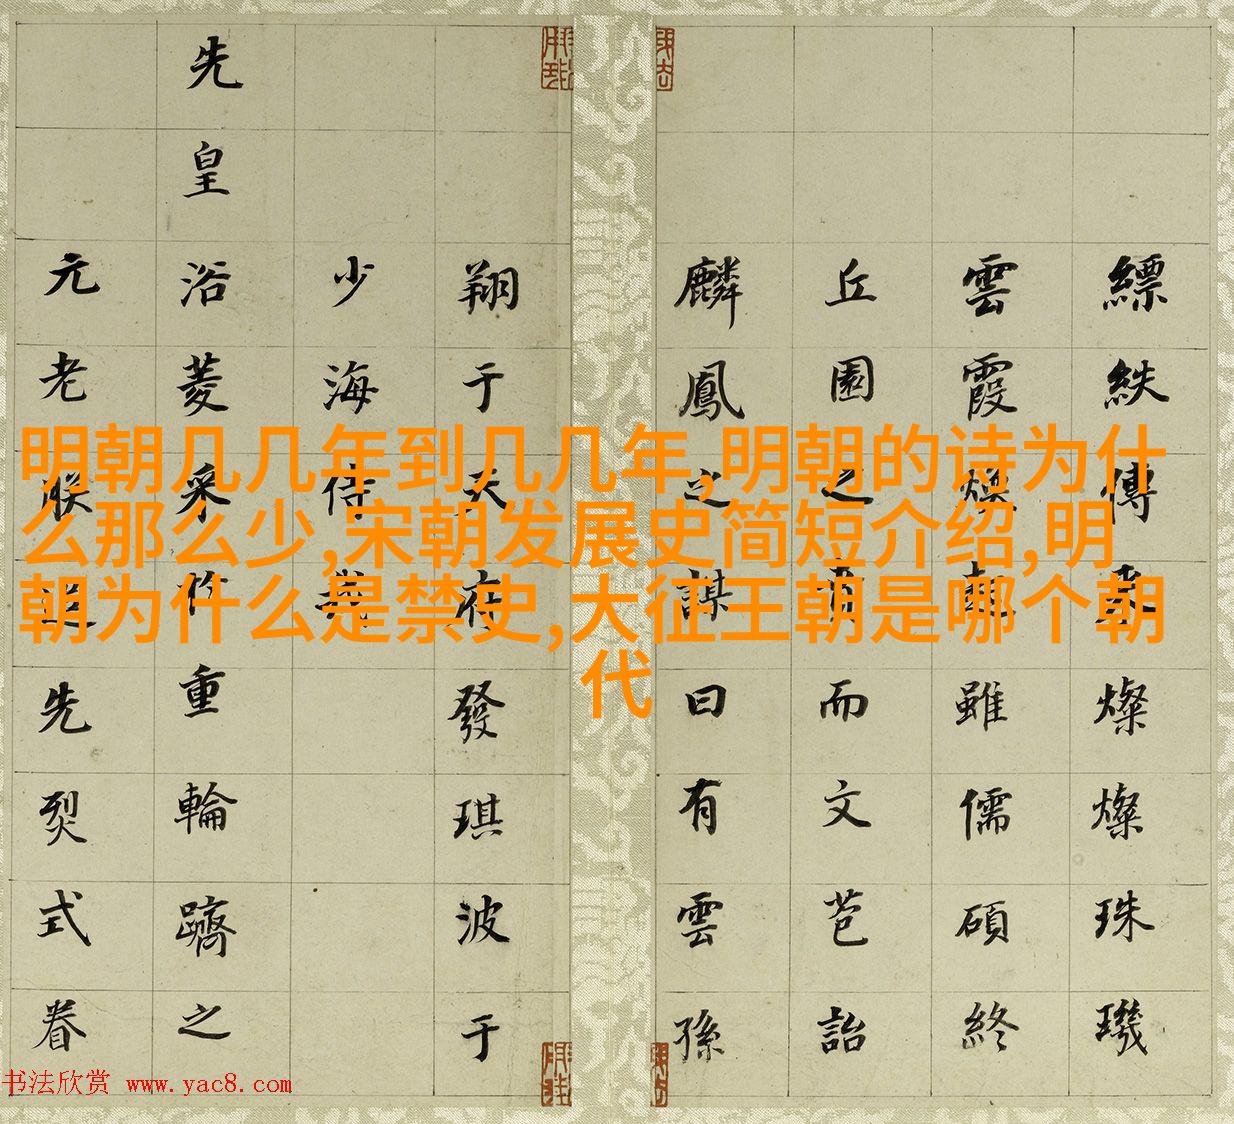 明朝几几年到几几年,明朝的诗为什
么那么少,宋朝发展史简短介绍,明
朝为什么是禁史,大征王朝是哪个朝
代
縹紩傳家燦燦珠璣
雲霞雖儒碩終
丘園之而文芭詒
麟鳳之謀曰有雲孫
翔于天府發琪波于
少海侍
先皇浴菱采重輪躋之
元老朕追先烈式眷
书法欣赏 www.yac8.com